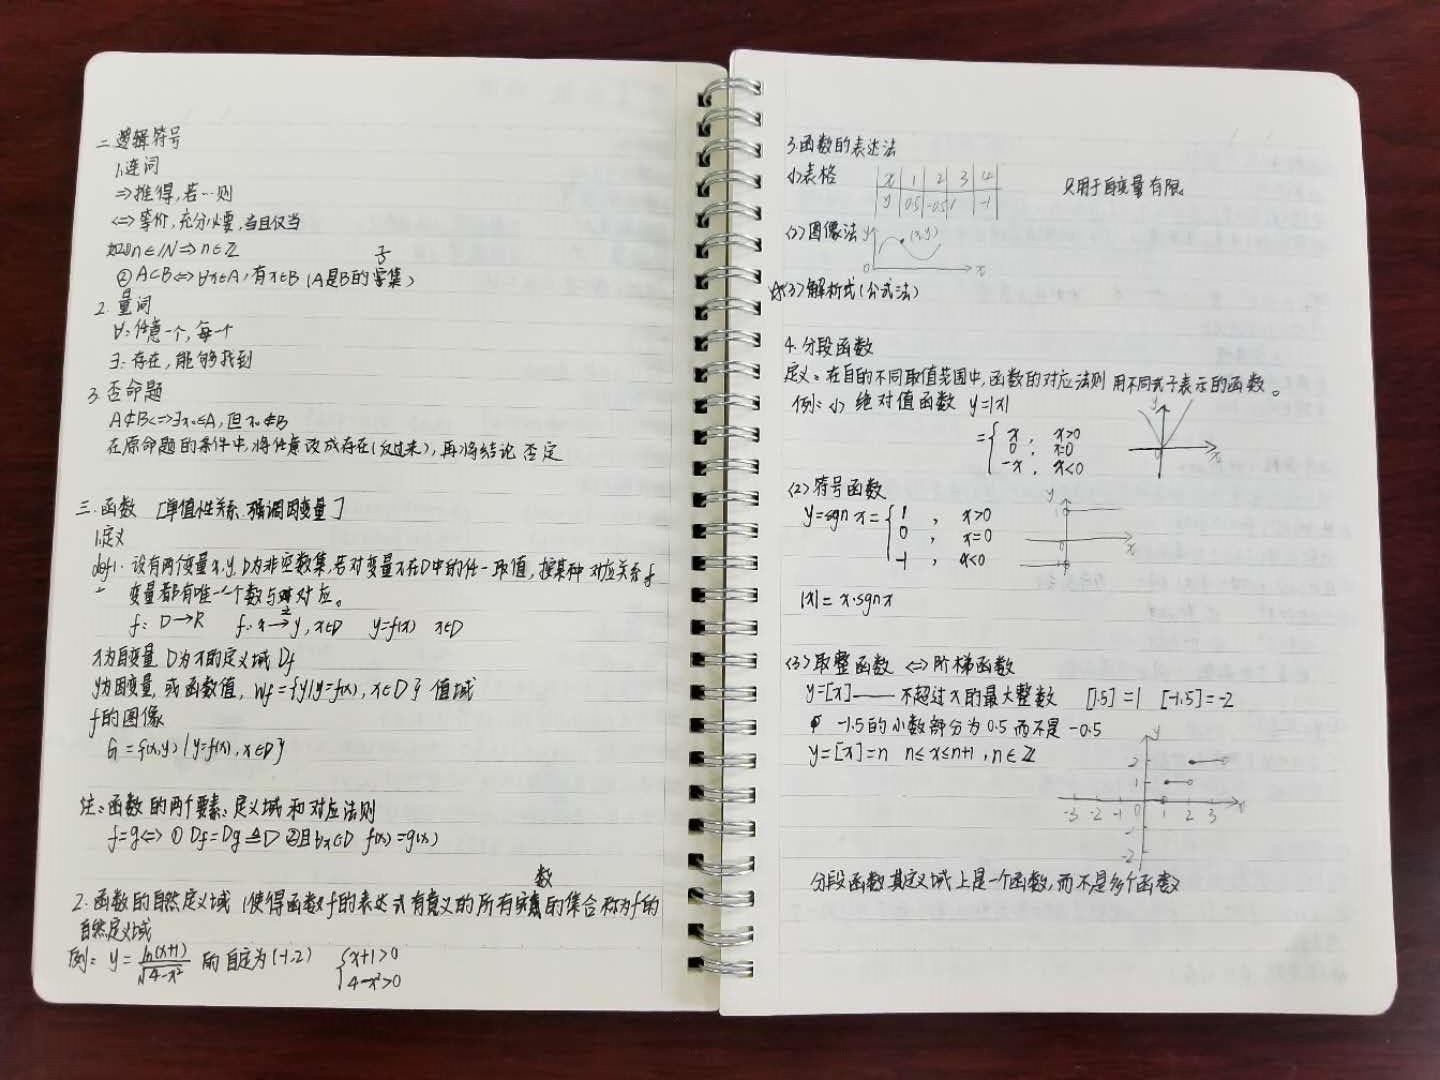 二 逻辑符号
1.连词
⇒推得,若…则
⇔等价,充分必要,当且仅当
如①n∈N⇒n∈Z
子
②A⊂B⇔∀x∈A,有x∈B (A是B的集)
2. 量词
∀:任意一个,每一个
∃:存在,能够找到
3. 否命题
A⊄B⇔∃x₀∈A,但x₀∉B
在原命题的条件中,将任意改成存在(反过来),再将结论否定
三.函数 [单值性关系.强调因变量]
1.定义
def1. 设有两个变量x,y,D为非空数集,若对变量x在D中的任一取值,按某种对应关系f
变量都有唯一一个数与之对应。
f: D→R f: x→y, x∈D y=f(x) x∈D
x为自变量 D为x的定义域 Df
y为因变量,或函数值, Wf={y|y=f(x), x∈D} 值域
f的图像
G={(x,y)|y=f(x), x∈D}
注:函数的两个要素:定义域和对应法则
f=g⇔ ① Df=Dg≜D ②且∀x∈D f(x)=g(x)
数
2.函数的自然定义域 (使得函数f的表达式有意义的所有实的集合称为f的
自然定义域
例: y=ln(x+1)/√(4-x²) 的自定为(-1,2) {x+1>0
4-x²>0
3.函数的表达法
(1)表格 x 1 2 3 4
y 0.5 -0.5 1 -1
只用于自变量有限。
(2)图像法 y (x,y)
0 x
(3)解析式(公式法)
4.分段函数
定义:在自的不同取值范围中,函数的对应法则用不同式子表示的函数。
例: (1) 绝对值函数 y=|x| y
={ x, x>0
0, x=0
-x, x<0
0 x
(2)符号函数 y
y=sgn x={ 1, x>0
0, x=0
-1, x<0
1 0 x -1
|x|=x·sgnx
(3)取整函数 ⇔阶梯函数
y=[x]—— 不超过x的最大整数 [1.5]=1 [-1.5]=-2
-1.5的小数部分为0.5而不是-0.5
y=[x]=n n≤x≤n+1, n∈Z
y
2
1
-3 -2 -1 0 1 2 3 x
-1
-2
分段函数其定义域上是一个函数,而不是多个函数